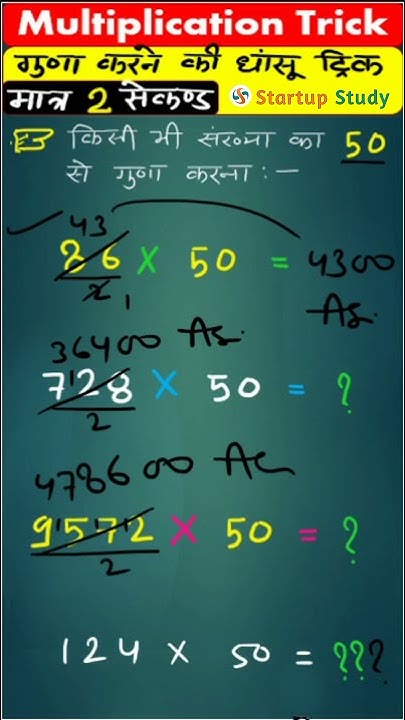 Multiplication Trick
गुणा करने की धांसू ट्रिक
मात्र 2 सेकण्ड Startup Study
किसी भी संख्या का 50
से गुणा करना :-
43
86 × 50 = 4300
2 1 As.
36400 As.
728 × 50 = ?
2
478600 As
9572 × 50 = ?
2
124 × 50 = ???